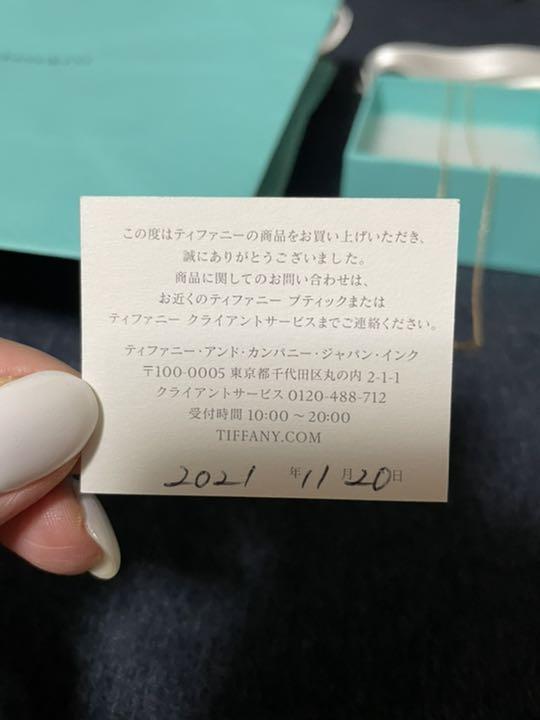 この度はティファニーの商品をお買い上げいただき、
誠にありがとうございました。
商品に関してのお問い合わせは、
お近くのティファニー ブティックまたは
ティファニー クライアントサービスまでご連絡ください。
ティファニー・アンド・カンパニー・ジャパン・インク
〒100-0005 東京都千代田区丸の内 2-1-1
クライアントサービス 0120-488-712
受付時間 10:00 〜 20:00
TIFFANY.COM
2021 年 11 月 20 日